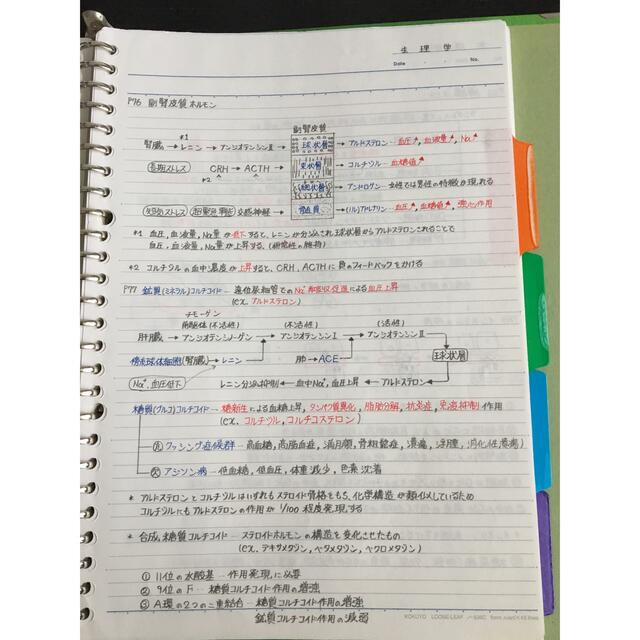 生理学
Date No.
P76 副腎皮質ホルモン
副腎皮質
*1
腎臓 → レニン → アンジオテンシンⅡ → 球状層 → アルドステロン … 血圧↑, 血液量↑, Na↑
長期ストレス CRH → ACTH → 束状層 → コルチゾル … 血糖値↑
*2
網状層 → アンドロゲン … 女性では男性の特徴が現れる
短期ストレス 交感神経 → 髄質 → (ノル)アドレナリン … 血圧↑, 血糖値↑, 強心作用
*1 血圧, 血液量, Na量が低下すると、レニンが分泌され球状層からアルドステロンされることで
血圧, 血液量, Na量が上昇する。(恒常性の維持)
*2 コルチゾルの血中濃度が上昇すると、CRH, ACTHに負のフィードバックをかける
P77 鉱質(ミネラル)コルチコイド … 遠位尿細管でのNa⁺再吸収促進による血圧上昇
(ex. アルドステロン)
チモーゲン
前駆体(不活性) (不活性) (活性)
肝臓 → アンジオテンシノーゲン → アンジオテンシンⅠ → アンジオテンシンⅡ
傍糸球体細胞(腎臓) → レニン 肺 → ACE 球状層
Na⁺, 血圧低下 レニン分泌抑制 ← 血中Na⁺, 血圧上昇 ← アルドステロン
糖質(グルコ)コルチコイド … 糖新生による血糖上昇, タンパク質異化, 脂肪分解, 抗炎症, 免疫抑制作用
(ex. コルチゾル, コルチコステロン)
高 クッシング症候群 … 高血糖, 高脂血症, 満月顔, 骨粗鬆症, 潰瘍, 浮腫, 消化性潰瘍)
欠 アジソン病 … 低血糖, 低血圧, 体重減少, 色素沈着
* アルドステロンとコルチゾルはいずれもステロイド骨格をもち、化学構造が類似しているため
コルチゾルにもアルドステロンの作用が 1/100 程度発現する
* 合成糖質コルチコイド … ステロイドホルモンの構造を変化させたもの
(ex. デキサメタゾン, ベタメタゾン, ベクロメタゾン)
① 11位の水酸基 … 作用発現に必要
② 9位のF … 糖質コルチコイド作用の増強
③ A環の2つの二重結合 … 糖質コルチコイド作用の増強
鉱質コルチコイド作用の減弱
KOKUYO LOOSE-LEAF